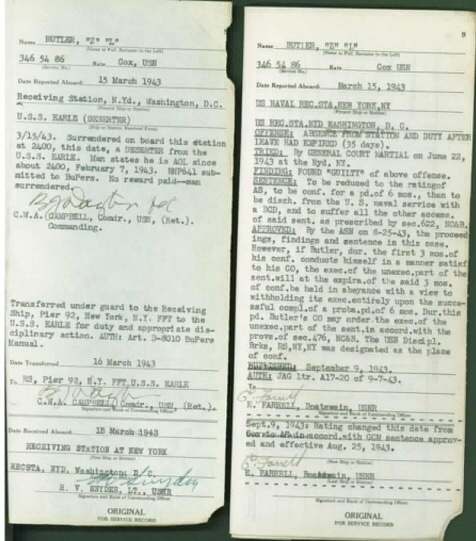 Name BUTLER, "Z" "L"
(Name in Full, Surname to the Left)
346 54 86 Rate Cox, USN
(Service No.)
Date Reported Aboard: 15 March 1943
Receiving Station, N.Yd., Washington, D.C.
(Present Ship or Station)
U.S.S. EARLE (DESERTER)
(Ship or Station Received From)
3/15/43. Surrendered on board this station
at 2400, this date, a DESERTER from the
U.S.S. EARLE. Man states he is AOL since
about 2400, February 7, 1943. NMP641 sub-
mitted to BuPers. No reward paid--man
surrendered.
C.W.A. CAMPBELL, Comdr., USN, (Ret.).
Commanding.
Transferred under guard to the Receiving
Ship, Pier 92, New York, N.Y. FFT to the
U.S.S. EARLE for duty and appropriate dis-
ciplinary action. AUTH: Art. D-8010 BuPers
Manual.
Date Transferred 16 March 1943
To RS, Pier 92, N.Y. FFT, U.S.S. EARLE
C.W.A. CAMPBELL, Comdr., USN, (Ret).
Signature and Rank of Commanding Officer
Date Received Aboard: 15 March 1943
RECEIVING STATION AT NEW YORK
(New Ship or Station)
RECSTA, NYD, Washington D/c.
H. V. SNYDER, LT., USNR
Signature and Rank of Commanding Officer
ORIGINAL
FOR SERVICE RECORD
9
Name BUTLER, "Z" "L"
(Name in Full, Surname to the Left)
346 54 86 Rate Cox USN
(Service No.)
Date Reported Aboard: March 15, 1943
US NAVAL REC.STA, NEW YORK, NY
(Present Ship or Station)
US REC.STA. NYD WASHINGTON, D. C.
OFFENSE: ABSENCE FROM STATION AND DUTY AFTER
LEAVE HAD EXPIRED (35 days).
TRIED: By GENERAL COURT MARTIAL on June 22,
1943 at the Nyd, NY.
FINDING: FOUND "GUILTY" of above offense.
SENTENCE: To be reduced to the rating of
AS, to be conf. for a pd.of 6 mos., than to
be disch. from the U.S. naval service with
a BCD, and to suffer all the other access.
of said sent. as prescribed by sec.622, NC&B.
APPROVED: By the ASN on 8-25-43, the proceed
ings, findings and sentence in this case.
However, if Butler, dur. the first 3 mos.of
his conf. conducts himself in a manner satisf
to his CO, the exec.of the unexec.part of the
sent.will at the expira.of the said 3 mos.
of conf.be held in abeyance with a view to
withholding its exec.entirely upon the succe-
ssful compl.of a proba.pd.of 6 mos. Dur.this
pd. Butler's CO may order the exec.of the
unexec.part of the sent.in accord.with the
prov.of sec.476, NC&B. The USN Discipl.
Brks, RS,NY,NY was designated as the place
of conf.
PUBLISHED: September 9, 1943.
AUTH: JAG ltr. A17-20 of 9-7-43.
R. FARRELL, Boatswain, USNR
Signature and Rank of Commanding Officer
Sept.9, 1943: Rating changed this date from
in accord.with GCM sentence approv-
ed and effective Aug. 25, 1943.
R. FARRELL, USNR
Signature and Rank of Commanding Officer
ORIGINAL
FOR SERVICE RECORD